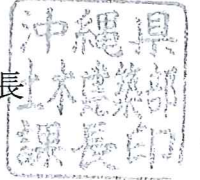 長
沖縄県
土木建築部
課長印